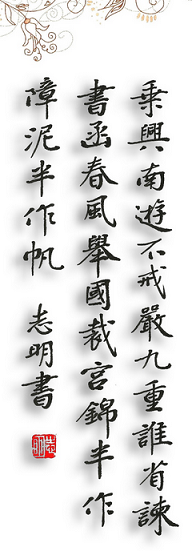 乗興南遊不戒嚴九重誰省諫
書函春風舉國裁宮錦半作
障泥半作帆 志明書
志明